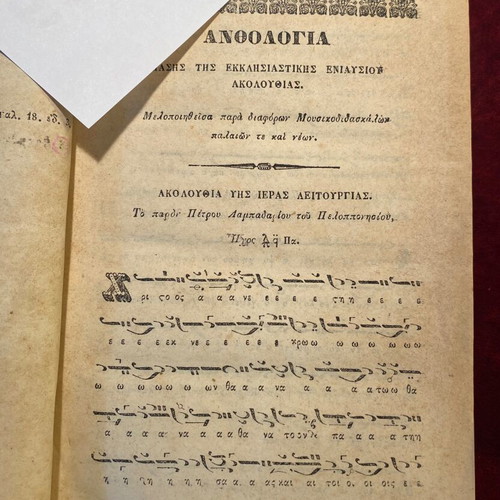 ΑΝΘΟΛΟΓΙΑ
ΤΗΣ ΕΚΚΛΗΣΙΑΣΤΙΚΗΣ ΕΝΙΑΥΣΙΟΥ
ΑΚΟΛΟΥΘΙΑΣ.
Μελοποιηθεῖσα παρὰ διαφόρων Μουσικοδιδασκάλων
παλαιῶν τε καὶ νέων.
18.
ΑΚΟΛΟΥΘΙΑ ΥΗΣ ΙΕΡΑΣ ΛΕΙΤΟΥΡΓΙΑΣ.
Τὸ παρὰ Πέτρου Λαμπαδαρίου τοῦ Πελοπποννησίου,
Ἦχος Πα.
Χ ρι στος α α α νε ε ε ε ε στη η ε ε ε
ε ε ε εκ νε ε ε ε ε κρω ω ω ω ω ω
ω ω ω ω ω ων θα α α να α α α α τω ω θα
α α α α να α α α θα να τον πα α α α τη η
η η ζη η η η σα α α ας και αι τοι οι οι οις ε ε